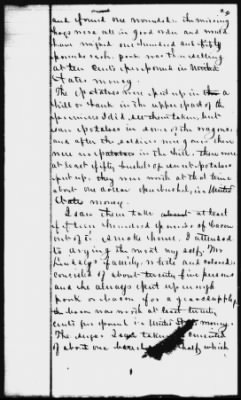 and found one wounded. the missing
hogs were all in good order and would
have weighed one hundred and fifty
pounds each. pork was then selling
at ten cents per pound in United
States money.
The potatoes were put up in a
hill or bank in the upper part of the
I did see them taken, but
saw potatoes in some of the wagons,
and after the soldiers were gone there
were no potatoes in the hill. There were
at least fifty bushels of sweet potatoes
put up. they were worth at that time
about one dollar per bushel, in United
States money.
I saw them take at least
hundred pounds of bacon
out of smoke house. I attended
to drying the meat my self. Mr
Lindsly's family, white and colored
consisted of about twenty five persons
and he always put up enough
pork or bacon for a good supply,
the bacon was worth at least twenty
cents per pound in United States money.
The sugar I saw taken consisted
of about one half, which